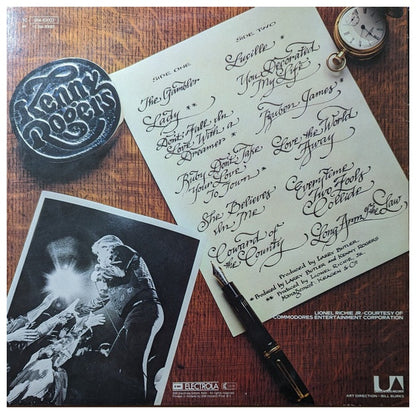 Kenny
Rogers
SIDE ONE
The Gambler
Lady **
Don't Fall In
Love With a
Dreamer *
Ruby Don't Take
Your Love
To Town
She Believes
In Me
Coward of
the County
SIDE TWO
Lucille
You Decorated
My Life
Reuben James *
Love the World
Away
Everytime
Two Fools
Collide
Long Arm of the Law **
Produced by LARRY BUTLER
* Produced by LARRY BUTLER and KENNY ROGERS
** Produced by LIONEL RICHIE, JR.
KRAGEN & CO.
LIONEL RICHIE JR.-COURTESY OF
COMMODORES ENTERTAINMENT CORPORATION
EMI ELECTROLA
UA
ART DIRECTION - BILL BURKS